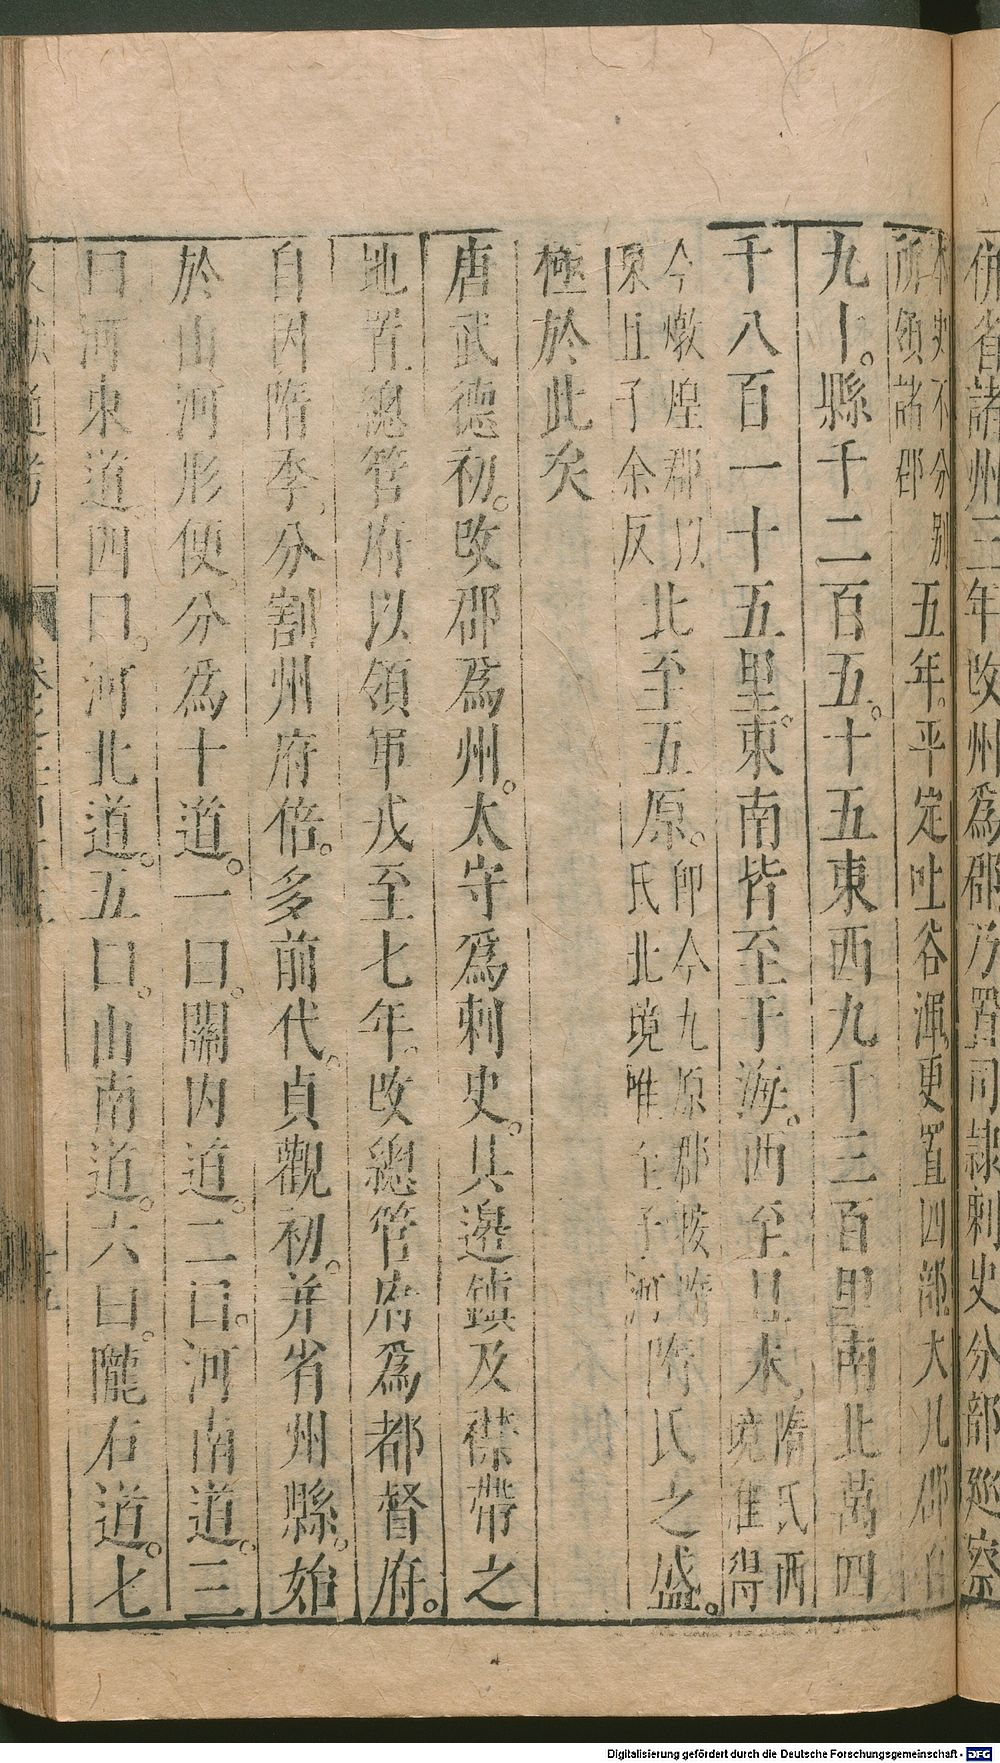 併省諸州三年改州爲郡乃置司隷刺史分部巡察
本史不分别
所領諸郡
五年平定吐谷渾更置四部大凡郡百
九十縣千二百五十五東西九千三百里南北萬四
千八百一十五里東南皆至于海西至且末
隋氏西
境唯得
今燉煌郡以
東且子余反
北至五原
即今九原郡按隋
氏北境唯至于河
隋氏之盛
極於此矣
唐武德初改郡爲州太守爲刺史其邊鎮及襟帶之
地置總管府以領軍戎至七年改總管府爲都督府
自因隋季分割州府倍多前代貞觀初并省州縣始
於山河形便分爲十道一曰關内道二曰河南道三
曰河東道四曰河北道五曰山南道六曰隴右道七
Digitalisierung gefördert durch die Deutsche Forschungsgemeinschaft - DFG